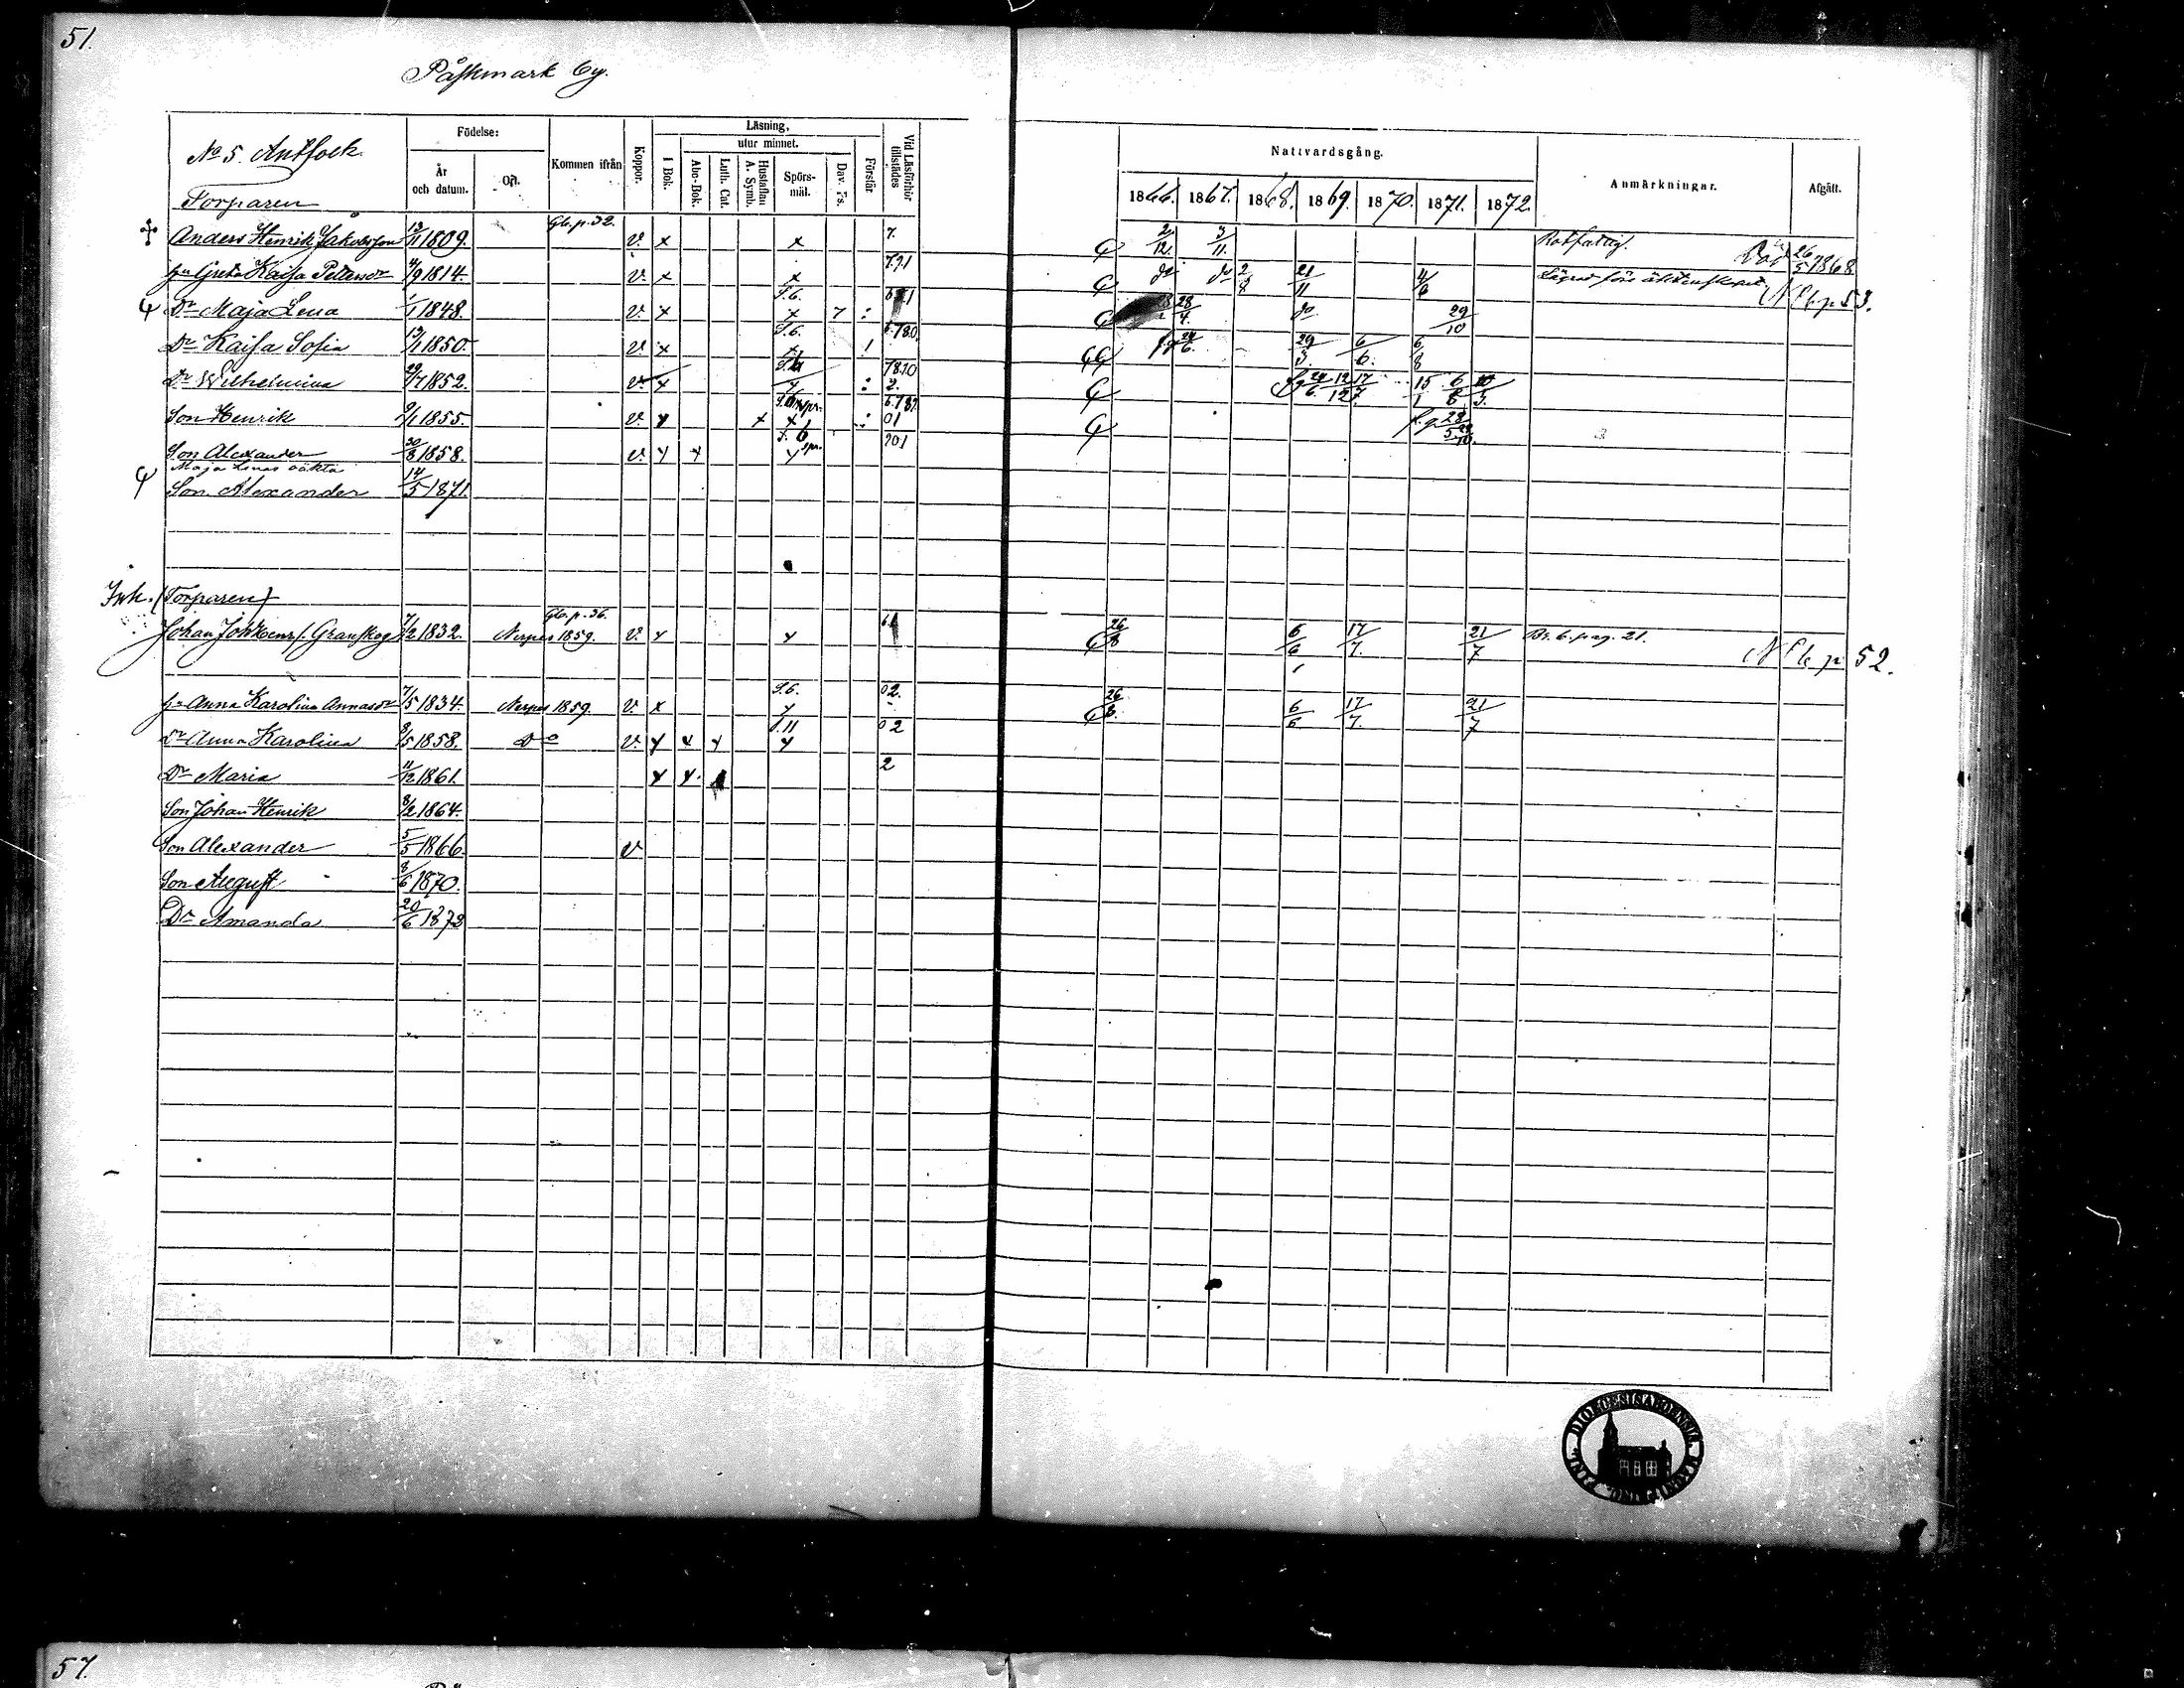 51.
Påskmark by.
No 5. Antfolk.
Födelse:
År och datum.
Ort.
Kommen ifrån
Koppor.
Läsning,
utur minnet.
I Bok.
Abc-Bok.
Luth. Cat.
Hustaflan A. Symb.
Spörs-mål.
Dav. Ps.
Förstår
Vid Läsförhör tillstädes
Nattvardsgång.
1866. 1867. 1868. 1869. 1870. 1871. 1872.
Anmärkningar.
Afgått.
Torparen
Anders Henrik Jakobsson 13/11 1809. Gb. p. 32. v. x x 7. 2/12. 3/11. Rotfattig. Död 26/5 1868
hu Greta Kaisa Petersdr 4/9 1814. v. x x 7.71 do do 2/8 21/11 4/6 Lägrad före äktenskapet N Cb p 53.
Dr Maja Lena 1/1 1848. v. x S.6. x 7 : 28/4. do 29/10
Dr Kaisa Sofia 13/1 1850. v. x S.6. x ! 6.780 24/6. 29/3. 6/6. 6/8
Dr Wilhelmina 29/7 1852. v. x : 7870 2. 24/6. 12/12 17/7. 15/1 6/8
Son Henrik 2/1 1855. v. x x x : 6.787 01 f.g. 28/5 29/10.
Son Alexander 30/8 1858. v. x x S. 6 spr. 701
Maja Lenas oäkta
Son Alexander 14/5 1871.
Inh. (Torparen)
Johan Joh Henrs. Granskog 7/2 1832. Nerpes 1859. Gb. p. 36. v. x x 26/8 6/6 17/7. 21/7 Br. b. pag. 21. N Cb p 52.
hu Anna Karolina Annasdr 7/5 1834. Nerpes 1859. v. x S.6. x 02. 26/8. 6/6 17/7. 21/7
Dr Anna Karolina 8/5 1858. Do v. x x x S.11 x 02
Dr Maria 11/12 1861. x x. 2
Son Johan Henrik 8/2 1864.
Son Alexander 5/5 1866. v
Son August 2/6 1870.
Dr Amanda 20/6 1872
57.